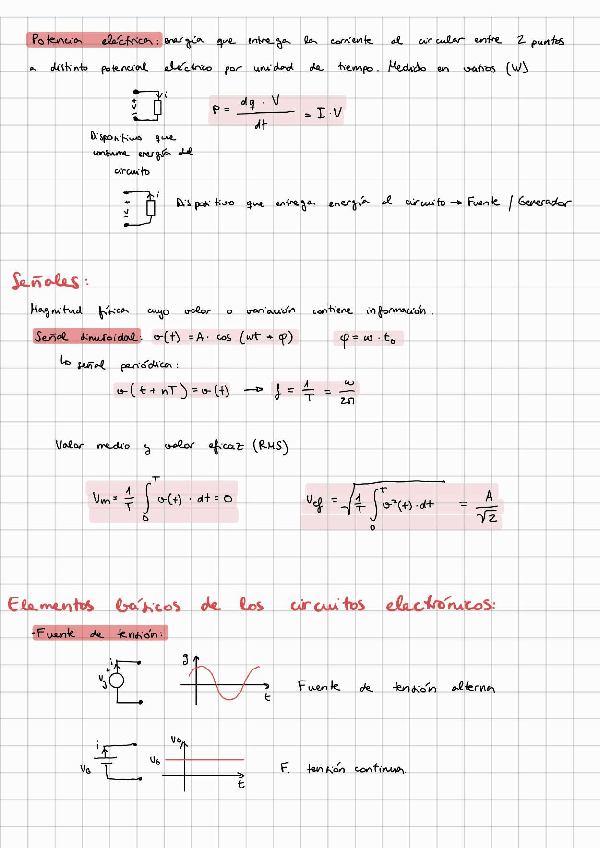 Potencia eléctrica: energía que entrega la corriente al circular entre 2 puntos
a distinto potencial eléctrico por unidad de tiempo. Medido en vatios (W)
+ V - i
P = dq · V / dt = I · V
Dispositivo que
consume energía del
circuito
+ V - i
Dispositivo que entrega energía al circuito → Fuente / Generador
Señales:
Magnitud física cuyo valor o variación contiene información.
Señal sinusoidal: v(t) = A · cos (wt + φ) φ = w · t₀
↳ señal periódica:
v(t + nT) = v(t) → f = 1/T = w/2π
Valor medio y valor eficaz (RMS)
Vm = 1/T ∫₀ᵀ v(t) · dt = 0 Vef = √(1/T ∫₀ᵀ v²(t) · dt) = A/√2
Elementos básicos de los circuitos electrónicos:
-Fuente de tensión:
i + Vg g t Fuente de tensión alterna
i VB VB VB t F. tensión continua.